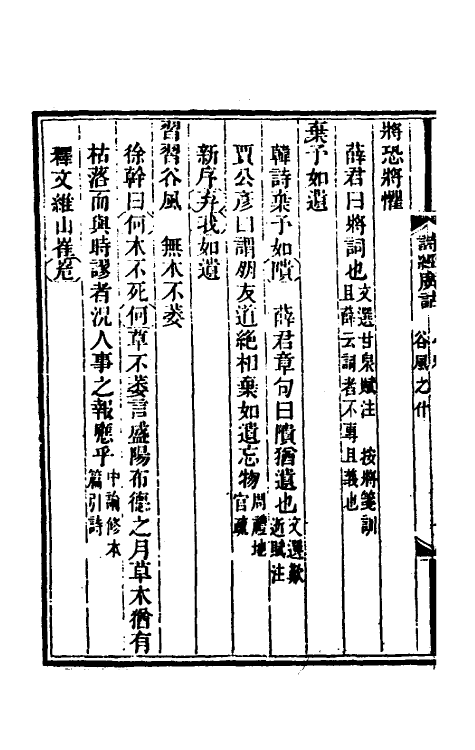 將恐將懼
薛君曰將詞也文選甘泉賦注　按將箋訓且薛云詞者不專且義也
棄予如遺
韓詩棄予如隤　薛君章句曰隤猶遺也文選歎逝賦注
賈公彥曰謂朋友道絶相棄如遺忘物周禮地官疏
新序弃我如遺
習習谷風　無木不萎
徐幹曰何木不死何草不萎言盛陽布德之月草木猶有
枯落而與時謬者況人事之報應乎中論修本篇引詩
釋文維山崔嵬
詩經廣詁　谷風之什